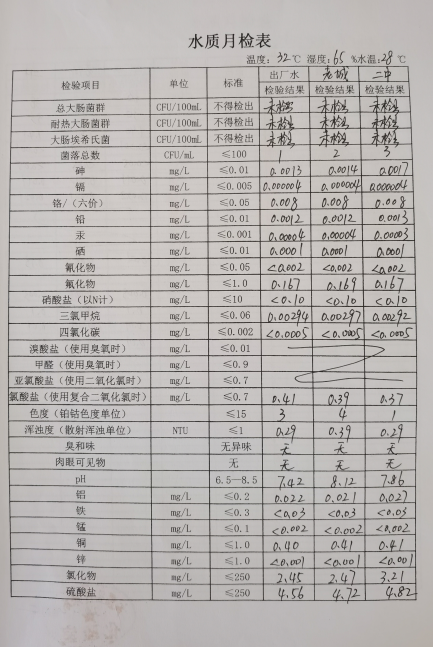 水质月检表
温度：32℃ 湿度：65%水温：28℃
检验项目 单位 标准 出厂水 检验结果 老城 检验结果 二中 检验结果
总大肠菌群 CFU/100mL 不得检出 未检出 未检出 未检出
耐热大肠菌群 CFU/100mL 不得检出 未检出 未检出 未检出
大肠埃希氏菌 CFU/100mL 不得检出 未检出 未检出 未检出
菌落总数 CFU/mL ≤100 1 2 3
砷 mg/L ≤0.01 0.0013 0.0014 0.0017
镉 mg/L ≤0.005 0.000004 0.000004 0.000004
铬/（六价） mg/L ≤0.05 0.008 0.008 0.008
铅 mg/L ≤0.01 0.0012 0.0012 0.0013
汞 mg/L ≤0.001 0.00004 0.00004 0.00003
硒 mg/L ≤0.01 0.0001 0.0001 0.0001
氰化物 mg/L ≤0.05 <0.002 <0.002 <0.002
氟化物 mg/L ≤1.0 0.167 0.169 0.167
硝酸盐（以N计） mg/L ≤10 <0.10 <0.10 <0.10
三氯甲烷 mg/L ≤0.06 0.00294 0.00297 0.00292
四氯化碳 mg/L ≤0.002 <0.0005 <0.0005 <0.0005
溴酸盐（使用臭氧时） mg/L ≤0.01
甲醛（使用臭氧时） mg/L ≤0.9
亚氯酸盐（使用二氧化氯时） mg/L ≤0.7
氯酸盐（使用复合二氧化氯时） mg/L ≤0.7 0.41 0.39 0.37
色度（铂钴色度单位） ≤15 3 4 1
浑浊度（散射浑浊单位） NTU ≤1 0.29 0.39 0.29
臭和味 无异味 无 无 无
肉眼可见物 无 无 无 无
pH 6.5—8.5 7.42 8.12 7.86
铝 mg/L ≤0.2 0.022 0.021 0.027
铁 mg/L ≤0.3 <0.03 <0.03 <0.03
锰 mg/L ≤0.1 <0.002 <0.002 <0.002
铜 mg/L ≤1.0 0.40 0.41 0.41
锌 mg/L ≤1.0 <0.001 <0.001 <0.001
氯化物 mg/L ≤250 2.45 2.47 3.21
硫酸盐 mg/L ≤250 4.56 4.72 4.82